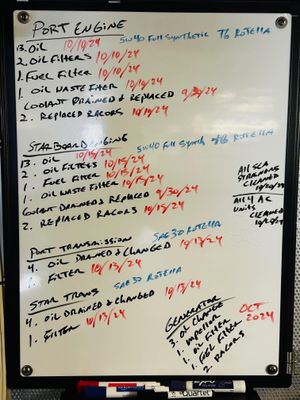 PORT ENGINE
13. OIL 10/10/24 5W40 Full Synthetic T6 ROTELLA
2. OIL FILTERS 10/10/24
1. FUEL FILTER 10/10/24
1. OIL WASTE FILTER 10/10/24
COOLANT DRAINED & REPLACED 9/30/24
2. REPLACED RACORS 10/10/24
STARBOARD ENGINE
13. OIL 10/15/24 5W40 Full Synth T6 ROTELLA
2. OIL FILTERS 10/15/24
1. FUEL FILTER 10/15/24
1. OIL WASTE FILTER 10/15/24
COOLANT DRAINED & REPLACED 9/30/24
2. REPLACED RACORS 10/15/24
All SEA
STRAINERS
CLEANED
All 4 AC
UNITS
CLEANED
PORT TRANSMISSION SAE 30 ROTELLA
4. OIL DRAINED & CHANGED 10/13/24
1. FILTER 10/13/24
STAR TRANS SAE 30 ROTELLA
4. OIL DRAINED & CHANGED 10/13/24
1. FILTER 10/13/24
GENERATOR OCT 2024
3. OIL CHANGE
1. IMPELLOR
1. OIL FILTER
1. FUEL FILTER
2. RACORS
EXPO
Quartet